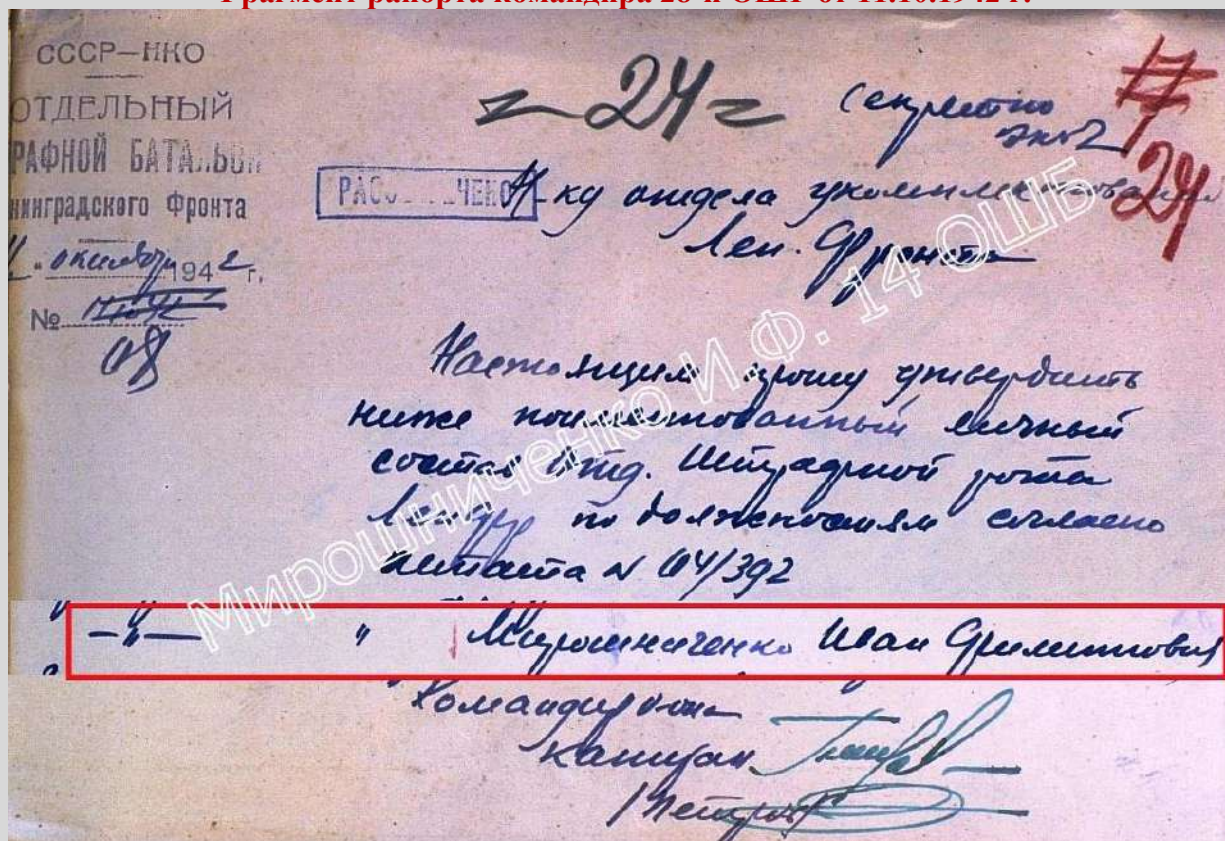 Фрагмент рапорта командира 28-й ОШР от 11.10.1942 г.
СССР-НКО
ОТДЕЛЬНЫЙ
РАФНОЙ БАТАЛЬОН
нинградского Фронта
октября 1942 г.
№
08
24
Секретно
экз 2
17
24
РАСС ЧЕНО
Н-ку отдела укомплектования
Лен. Фронта
Настоящим прошу утвердить
ниже поименованный личный
состав Отд. Штрафной роты
по должностям согласно
штата N 04/392
-"- " Мирошниченко Иван Филиппович
Командир роты
Капитан
/Петров/
Мирошниченко И.Ф. 14 ОШБ